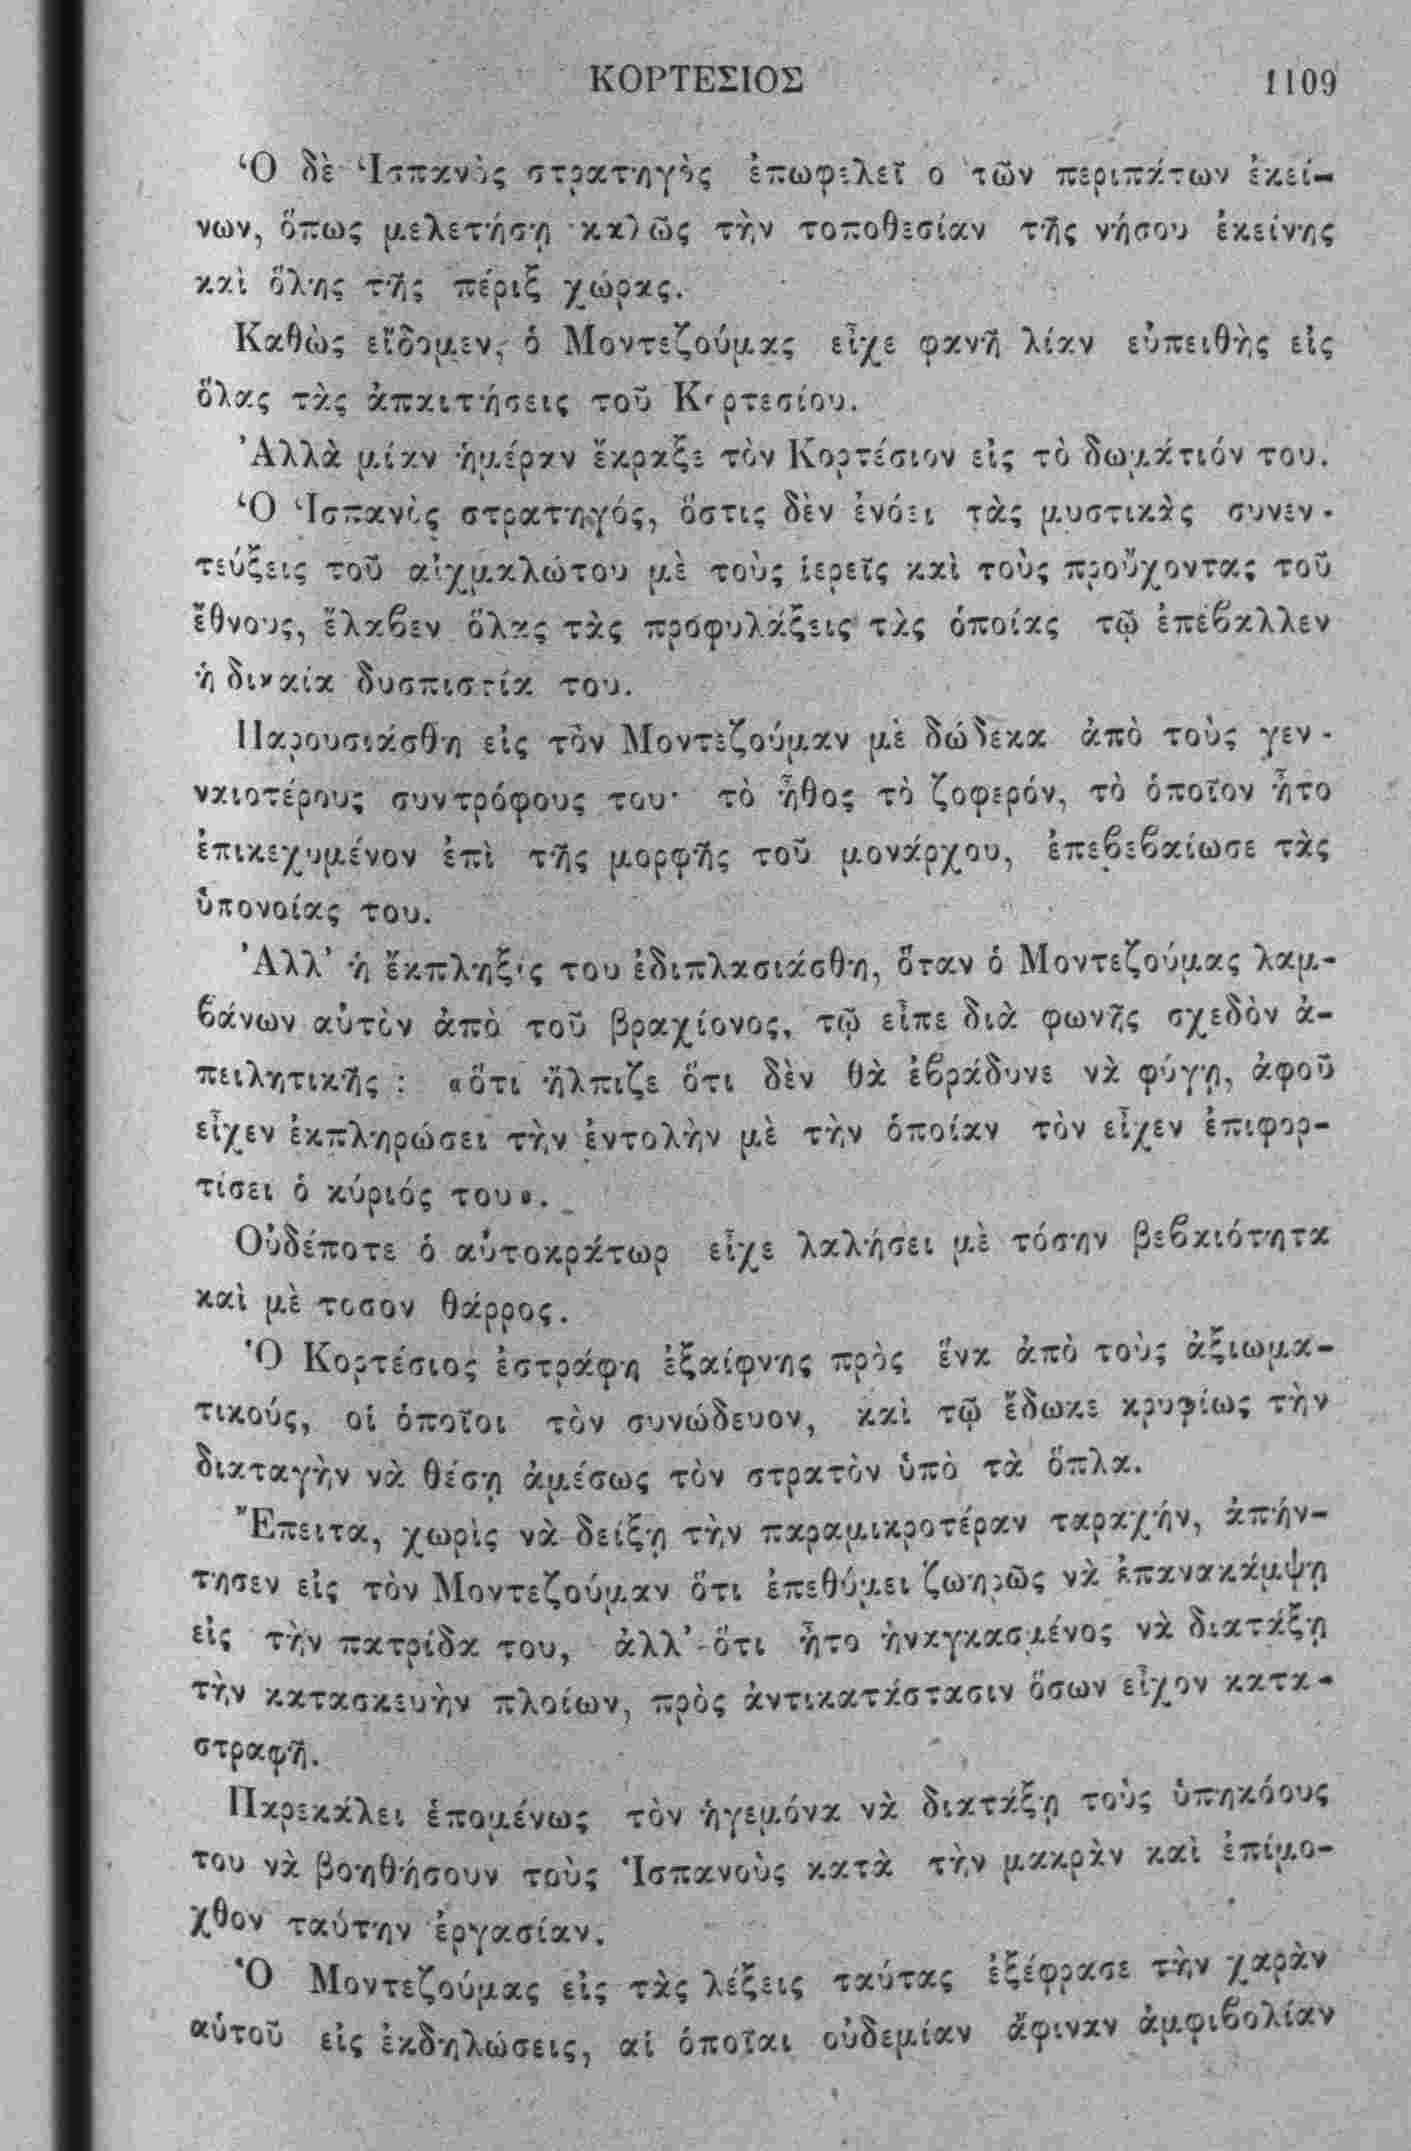 ΚΟΡΤΕΣΙΟΣ 1109
Ὁ δὲ Ἱσπανὸς στρατηγὸς ἐπωφελεῖ ο τῶν περιπάτων ἐκεί-
νων, ὅπως μελετήσῃ καλῶς τὴν τοποθεσίαν τῆς νήσου ἐκείνης
καὶ ὅλης τῆς πέριξ χώρας.
Καθὼς εἴδομεν, ὁ Μοντεζούμας εἶχε φανῆ λίαν εὐπειθὴς εἰς
ὅλας τὰς ἀπαιτήσεις τοῦ Κορτεσίου.
Ἀλλὰ μίαν ἡμέραν ἔκραξε τὸν Κορτέσιον εἰς τὸ δωμάτιόν του.
Ὁ Ἱσπανὸς στρατηγός, ὅστις δὲν ἐνόει τὰς μυστικὰς συνεν-
τεύξεις τοῦ αἰχμαλώτου μὲ τοὺς ἱερεῖς καὶ τοὺς προὔχοντας τοῦ
ἔθνους, ἔλαβεν ὅλας τὰς προφυλάξεις τὰς ὁποίας τῷ ἐπέβαλλεν
ἡ δικαία δυσπιστία του.
Παρουσιάσθη εἰς τὸν Μοντεζούμαν μὲ δώδεκα ἀπὸ τοὺς γεν-
ναιοτέρους συντρόφους του· τὸ ἦθος τὸ ζοφερόν, τὸ ὁποῖον ἦτο
ἐπικεχυμένον ἐπὶ τῆς μορφῆς τοῦ μονάρχου, ἐπεβεβαίωσε τὰς
ὑπονοίας του.
Ἀλλ' ἡ ἔκπληξις του ἐδιπλασιάσθη, ὅταν ὁ Μοντεζούμας λαμ-
βάνων αὐτὸν ἀπὸ τοῦ βραχίονος, τῷ εἶπε διὰ φωνῆς σχεδὸν ἀ-
πειλητικῆς : «ὅτι ἤλπιζε ὅτι δὲν θὰ ἐβράδυνε νὰ φύγῃ, ἀφοῦ
εἶχεν ἐκπληρώσει τὴν ἐντολὴν μὲ τὴν ὁποίαν τὸν εἶχεν ἐπιφορ-
τίσει ὁ κύριός του».
Οὐδέποτε ὁ αὐτοκράτωρ εἶχε λαλήσει μὲ τόσην βεβαιότητα
καὶ μὲ τοσον θάρρος.
Ὁ Κορτέσιος ἐστράφη ἐξαίφνης πρὸς ἕνα ἀπὸ τοὺς ἀξιωμα-
τικούς, οἱ ὁποῖοι τὸν συνώδευον, καὶ τῷ ἔδωκε κρυφίως τὴν
διαταγὴν νὰ θέσῃ ἀμέσως τὸν στρατὸν ὑπὸ τὰ ὅπλα.
Ἔπειτα, χωρὶς νὰ δείξῃ τὴν παραμικροτέραν ταραχήν, ἀπήν-
τησεν εἰς τὸν Μοντεζούμαν ὅτι ἐπεθύμει ζωηρῶς νὰ ἐπανακάμψῃ
εἰς τὴν πατρίδα του, ἀλλ' ὅτι ἦτο ἠναγκασμένος νὰ διατάξῃ
τὴν κατασκευὴν πλοίων, πρὸς ἀντικατάστασιν ὅσων εἶχον κατα-
στραφῆ.
Παρεκάλει ἑπομένως τὸν ἡγεμόνα νὰ διατάξῃ τοὺς ὑπηκόους
του νὰ βοηθήσουν τοὺς Ἱσπανοὺς κατὰ τὴν μακρὰν καὶ ἐπίμο-
χθον ταύτην ἐργασίαν.
Ὁ Μοντεζούμας εἰς τὰς λέξεις ταύτας ἐξέφρασε τὴν χαρὰν
αὑτοῦ εἰς ἐκδηλώσεις, αἱ ὁποῖαι οὐδεμίαν ἄφιναν ἀμφιβολίαν